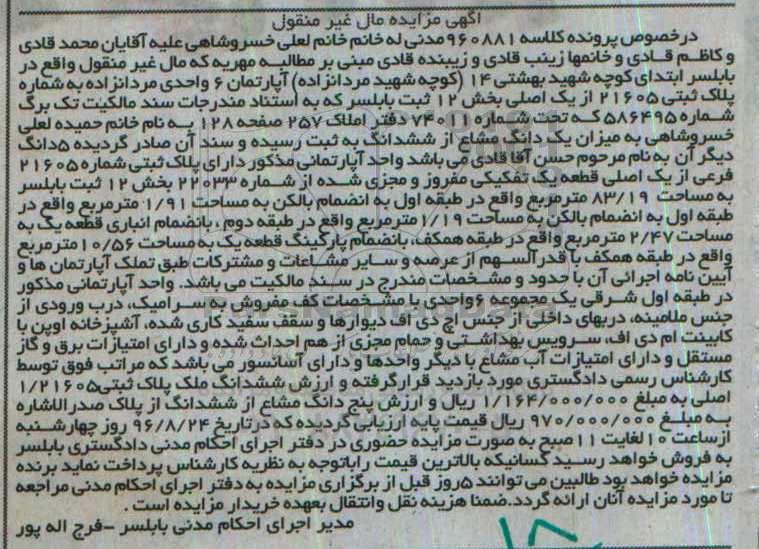 آگهی مزایده مال غیر منقول
درخصوص پرونده کلاسه ۹۶۰۸۸۱ مدنی له خانم خانم لعلی خسروشاهی علیه آقایان محمد قادی
و کاظم قادی و خانمها زینب قادی و زیبنده قادی مبنی بر مطالبه مهریه که مال غیر منقول واقع در
بابلسر ابتدای کوچه شهید بهشتی ۱۴ (کوچه شهید مردانزاده) آپارتمان ۶ واحدی مردانزاده به شماره
پلاک ثبتی ۲۱۶۰۵ از یک اصلی بخش ۱۲ ثبت بابلسر که به استناد مندرجات سند مالکیت تک برگ
شماره ۵۸۶۴۹۵ که تحت شماره ۷۴۰۱۱ دفتر املاک ۲۵۷ صفحه ۱۲۸ به نام خانم حمیده لعلی
خسروشاهی به میزان یک دانگ مشاع از ششدانگ به ثبت رسیده و سند آن صادر گردیده ۵دانگ
دیگر آن به نام مرحوم حسن آقا قادی می باشد واحد آپارتمانی مذکور دارای پلاک ثبتی شماره ۲۱۶۰۵
فرعی از یک اصلی قطعه یک تفکیکی مفروز و مجزی شده از شماره ۲۲۰۳۳ بخش ۱۲ ثبت بابلسر
به مساحت ۸۳/۱۹ مترمربع واقع در طبقه اول به انضمام بالکن به مساحت ۱/۹۱ مترمربع واقع در
طبقه اول به انضمام بالکن به مساحت ۱/۱۹ مترمربع واقع در طبقه دوم ، بانضمام انباری قطعه یک به
مساحت ۲/۴۷ مترمربع واقع در طبقه همکف، بانضمام پارکینگ قطعه یک به مساحت ۱۰/۵۶ مترمربع
واقع در طبقه همکف با قدرالسهم از عرصه و سایر مشاعات و مشترکات طبق تملک آپارتمان ها و
آیین نامه اجرائی آن با حدود و مشخصات مندرج در سند مالکیت می باشد. واحد آپارتمانی مذکور
در طبقه اول شرقی یک مجموعه ۶واحدی با مشخصات کف مفروش به سرامیک، درب ورودی از
جنس ملامینه، دربهای داخلی از جنس اچ دی اف دیوارها و سقف سفید کاری شده، آشپزخانه اوپن با
کابینت ام دی اف، سرویس بهداشتی و حمام مجزی از هم احداث شده و دارای امتیازات برق و گاز
مستقل و دارای امتیازات آب مشاع با دیگر واحدها و دارای آسانسور می باشد که مراتب فوق توسط
کارشناس رسمی دادگستری مورد بازدید قرار گرفته و ارزش ششدانگ ملک پلاک ثبتی ۱/۲۱۶۰۵
اصلی به مبلغ ۱/۱۶۴/۰۰۰/۰۰۰ ریال و ارزش پنج دانگ مشاع از ششدانگ از پلاک صدرالاشاره
به مبلغ ۹۷۰/۰۰۰/۰۰۰ ریال قیمت پایه ارزیابی گردیده که درتاریخ ۹۶/۸/۲۴ روز چهارشنبه
ازساعت ۱۰ لغایت ۱۱ صبح به صورت مزایده حضوری در دفتر اجرای احکام مدنی دادگستری بابلسر
به فروش خواهد رسید کسانیکه بالاترین قیمت راباتوجه به نظریه کارشناس پرداخت نماید برنده
مزایده خواهد بود طالبین می توانند ۵روز قبل از برگزاری مزایده به دفتر اجرای احکام مدنی مراجعه
تا مورد مزایده آنان ارائه گردد.ضمنا هزینه نقل وانتقال بعهده خریدار مزایده است .
مدیر اجرای احکام مدنی بابلسر –فرج اله پور